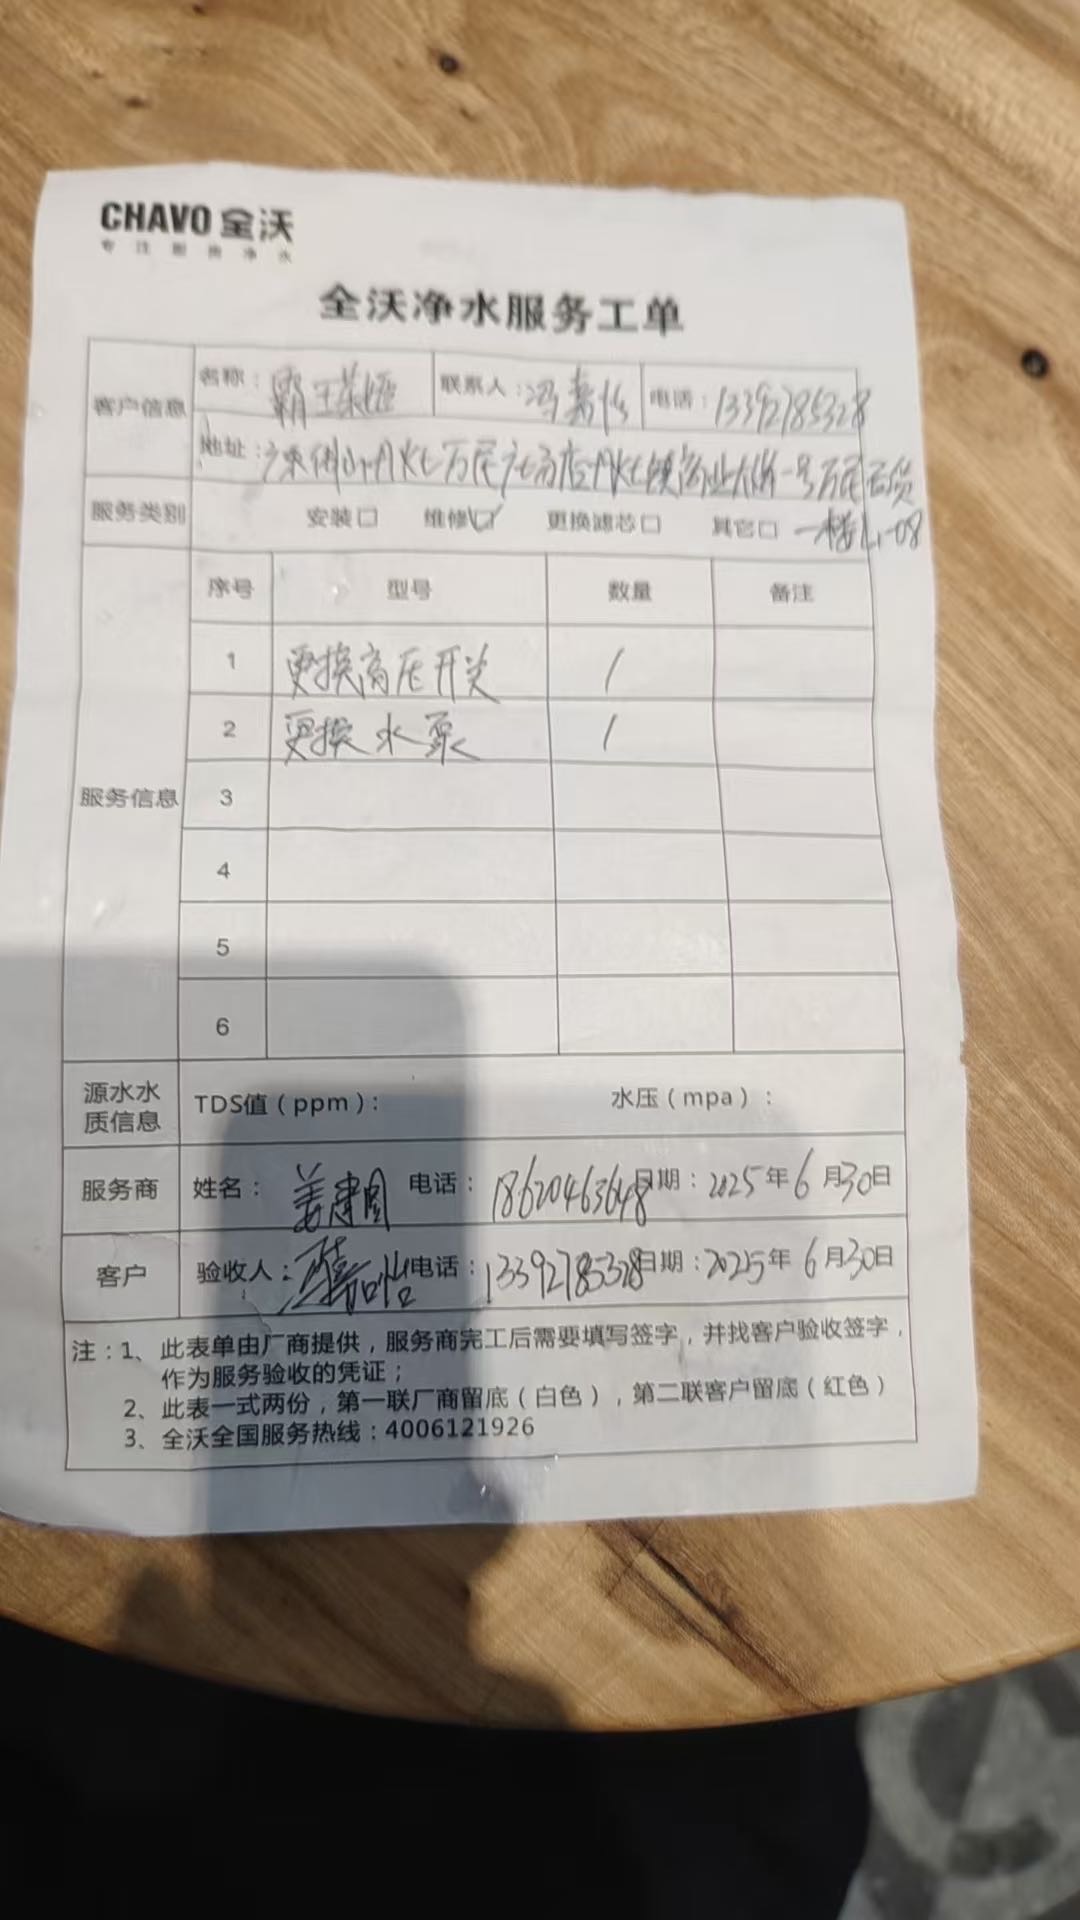 CHAVO 全沃
专注厨房净水
全沃净水服务工单
客户信息 名称：霸王茶姬 联系人：冯嘉怡 电话：13392785328
地址：广东佛山丹灶万民广场店丹灶镇商业大街一号万民百货
服务类别 安装□ 维修☑ 更换滤芯□ 其它□ 一楼L1-08
序号 型号 数量 备注
服务信息
1 更换高压开关 1
2 更换水泵 1
3
4
5
6
源水水质信息 TDS值（ppm）： 水压（mpa）：
服务商 姓名：姜建国 电话：18620463648 日期：2025年6月30日
客户 验收人：嘉怡 电话：13392785328 日期：2025年6月30日
注：1、此表单由厂商提供，服务商完工后需要填写签字，并找客户验收签字，
作为服务验收的凭证；
2、此表一式两份，第一联厂商留底（白色），第二联客户留底（红色）
3、全沃全国服务热线：4006121926